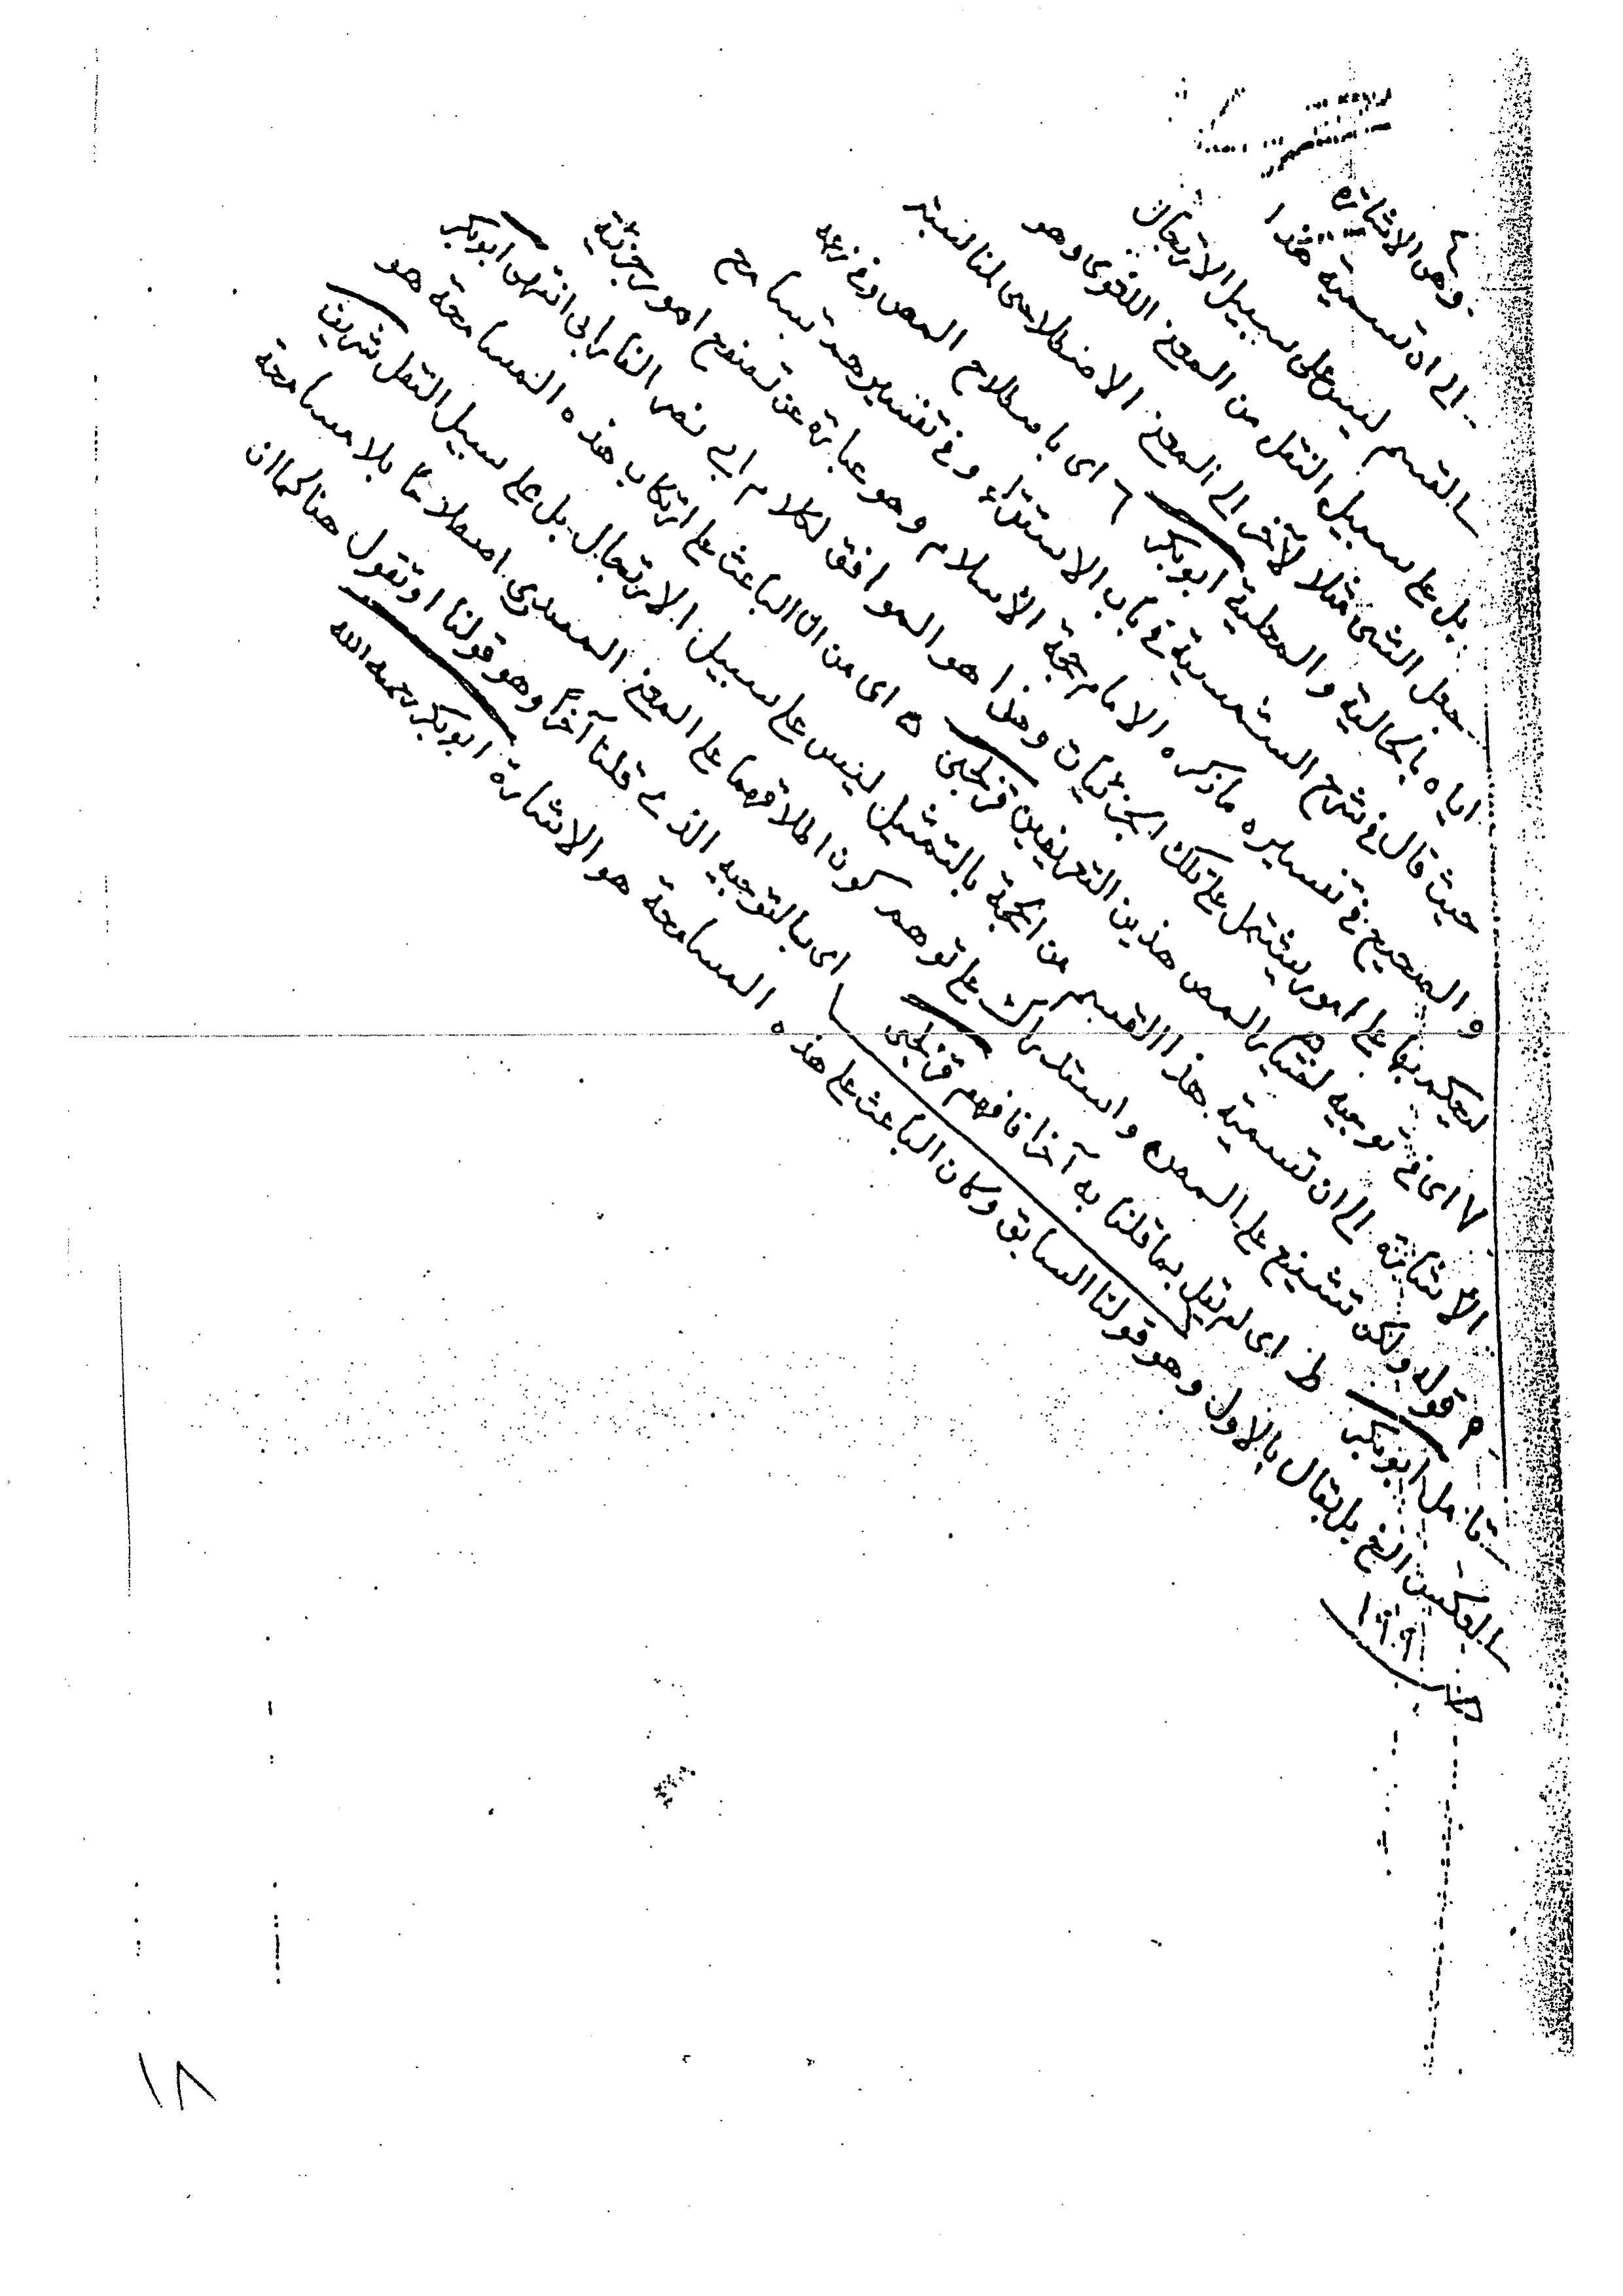 ٤ وهى الاشارة
الى ان تسمية هذا
القسم ليس على سبيل الارتجال
بل على سبيل النقل من المعنى اللغوى وهو
جعل الشئ مثلا لآخر الى المعنى الاصطلاحى لمناسبة
اياه بالحالية والمحلية ابوبكر ٦ اى باصطلاح المص وفى زعمه
حيث قال فى شرح الشمسية فى باب الاستقراء وفى تفسيرهم تسامح
والصحيح فى تفسيره ماذكره الامام حجة الأسلام وهو عبارة عن تصفح امور جزئية
ليحكم بها على امور يشتمل على تلك الجزئيات وهذا هو الموافق لكلام ابى نصر الفارابى انتهى ابوبكر
٧ اى فى توجيه لفتيار المص هذين التعريفين قزلجى ٥ اى من ان الباعث على ارتكاب هذه المسامحة هو
الأشارة الى ان تسمية هذا القسم من الحجة بالتمثيل ليس على سبيل الارتجال بل على سبيل النقل شريف
٩ قوله ولكن تشنيع على المص واستدراك على توهم كون اطلاقهما على المعنى المصدرى اصطلاحا بلا مسامحة
تامل ابوبكر ط اى لم يقل بما قلنا به آخرا فافهم قزلجى اى بالتوجيه الذى قلنا آخرا وهو قولنا او تقول هنا كما ان
العكس الخ بل يقال بالاول وهو قولنا السابق وكان الباعث على هذه المسامحة هو الاشارة ابوبكر رحمه الله
١٨